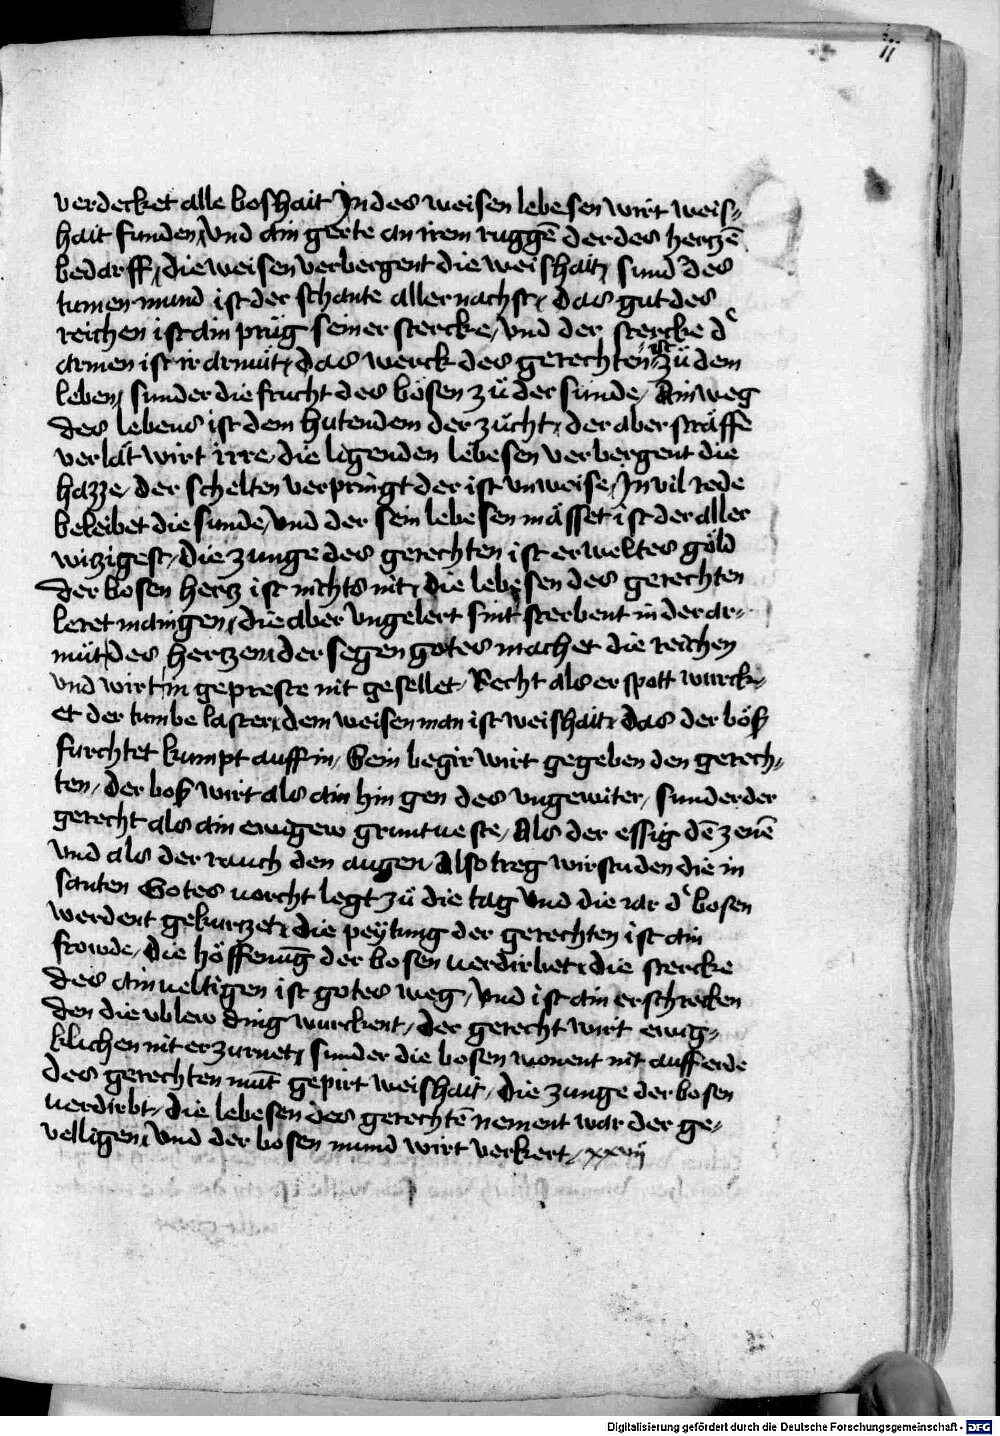 11
verdecket alle boshait Jn des weisen lebesen wirt weis⸗
hait funden / Vnd ain gerte an irem ruggē der des hertzē
bedarff / die weisen verbergent die weishait / sund' des
tumen mund ist der schante aller nachst / das gut des
reichen ist ain prüg seiner stercke / Vnd der stercke d'
armen ist ir armüt / das werck des gerechten ist zü dem
leben / sunder die frucht des bösen zü der sunde / Ain weg
des lebens ist dem hutendem der zücht / der aber sträffe
verlät wirt irre / die ligenden lebesen verbergent die
hazze / der schelten verpringt der ist vnweise / Jn vil rede
beleibet die sunde / Vnd der sein lebesen mässet ist der aller
witzigest / die zunge des gerechten ist erweltes göld
der bosen hertz ist nichts nit / die lebesen des gerechten
leret mangen / die aber Vngelert sint sterbent in der ar⸗
müt des hertzen / der segen gotes machet die reichen
vnd wirt in gepreste nit gesellet / Recht als er spott wurck⸗
et der tumbe laster / dem weisen man ist weishait / das der böß
furchtet kumpt auff in / Sein begir wirt gegeben den gerech⸗
ten / der boß wirt als ain hin gen des vngewiter / sunder der
gerecht als ain ewigew gruntueste / Als der essig dē zenē
Vnd als der rauch den augen / Also treg wirstu den die in
santen Gotes vorcht legt zü die tag Vnd die iar d' bosen
werdent gekurtzet / die peytung der gerechten ist ain
frowde / die höffenūg der bosen verdirbet / die stercke
des ainueltigen ist gotes weg / Vnd ist ain erschrecken
den die vblew ding wurckent / der gerecht wirt ewig⸗
klichen nit erzurnet / sunder die bosen wonent nit auff erde
des gerechten mūt gepirt weishait / die zunge der bosen
verdirbt / die lebesen des gerechtē nement war der ge⸗
velligen / Vnd der bosen mund wirt verkert / xxviij
Digitalisierung gefördert durch die Deutsche Forschungsgemeinschaft - DFG